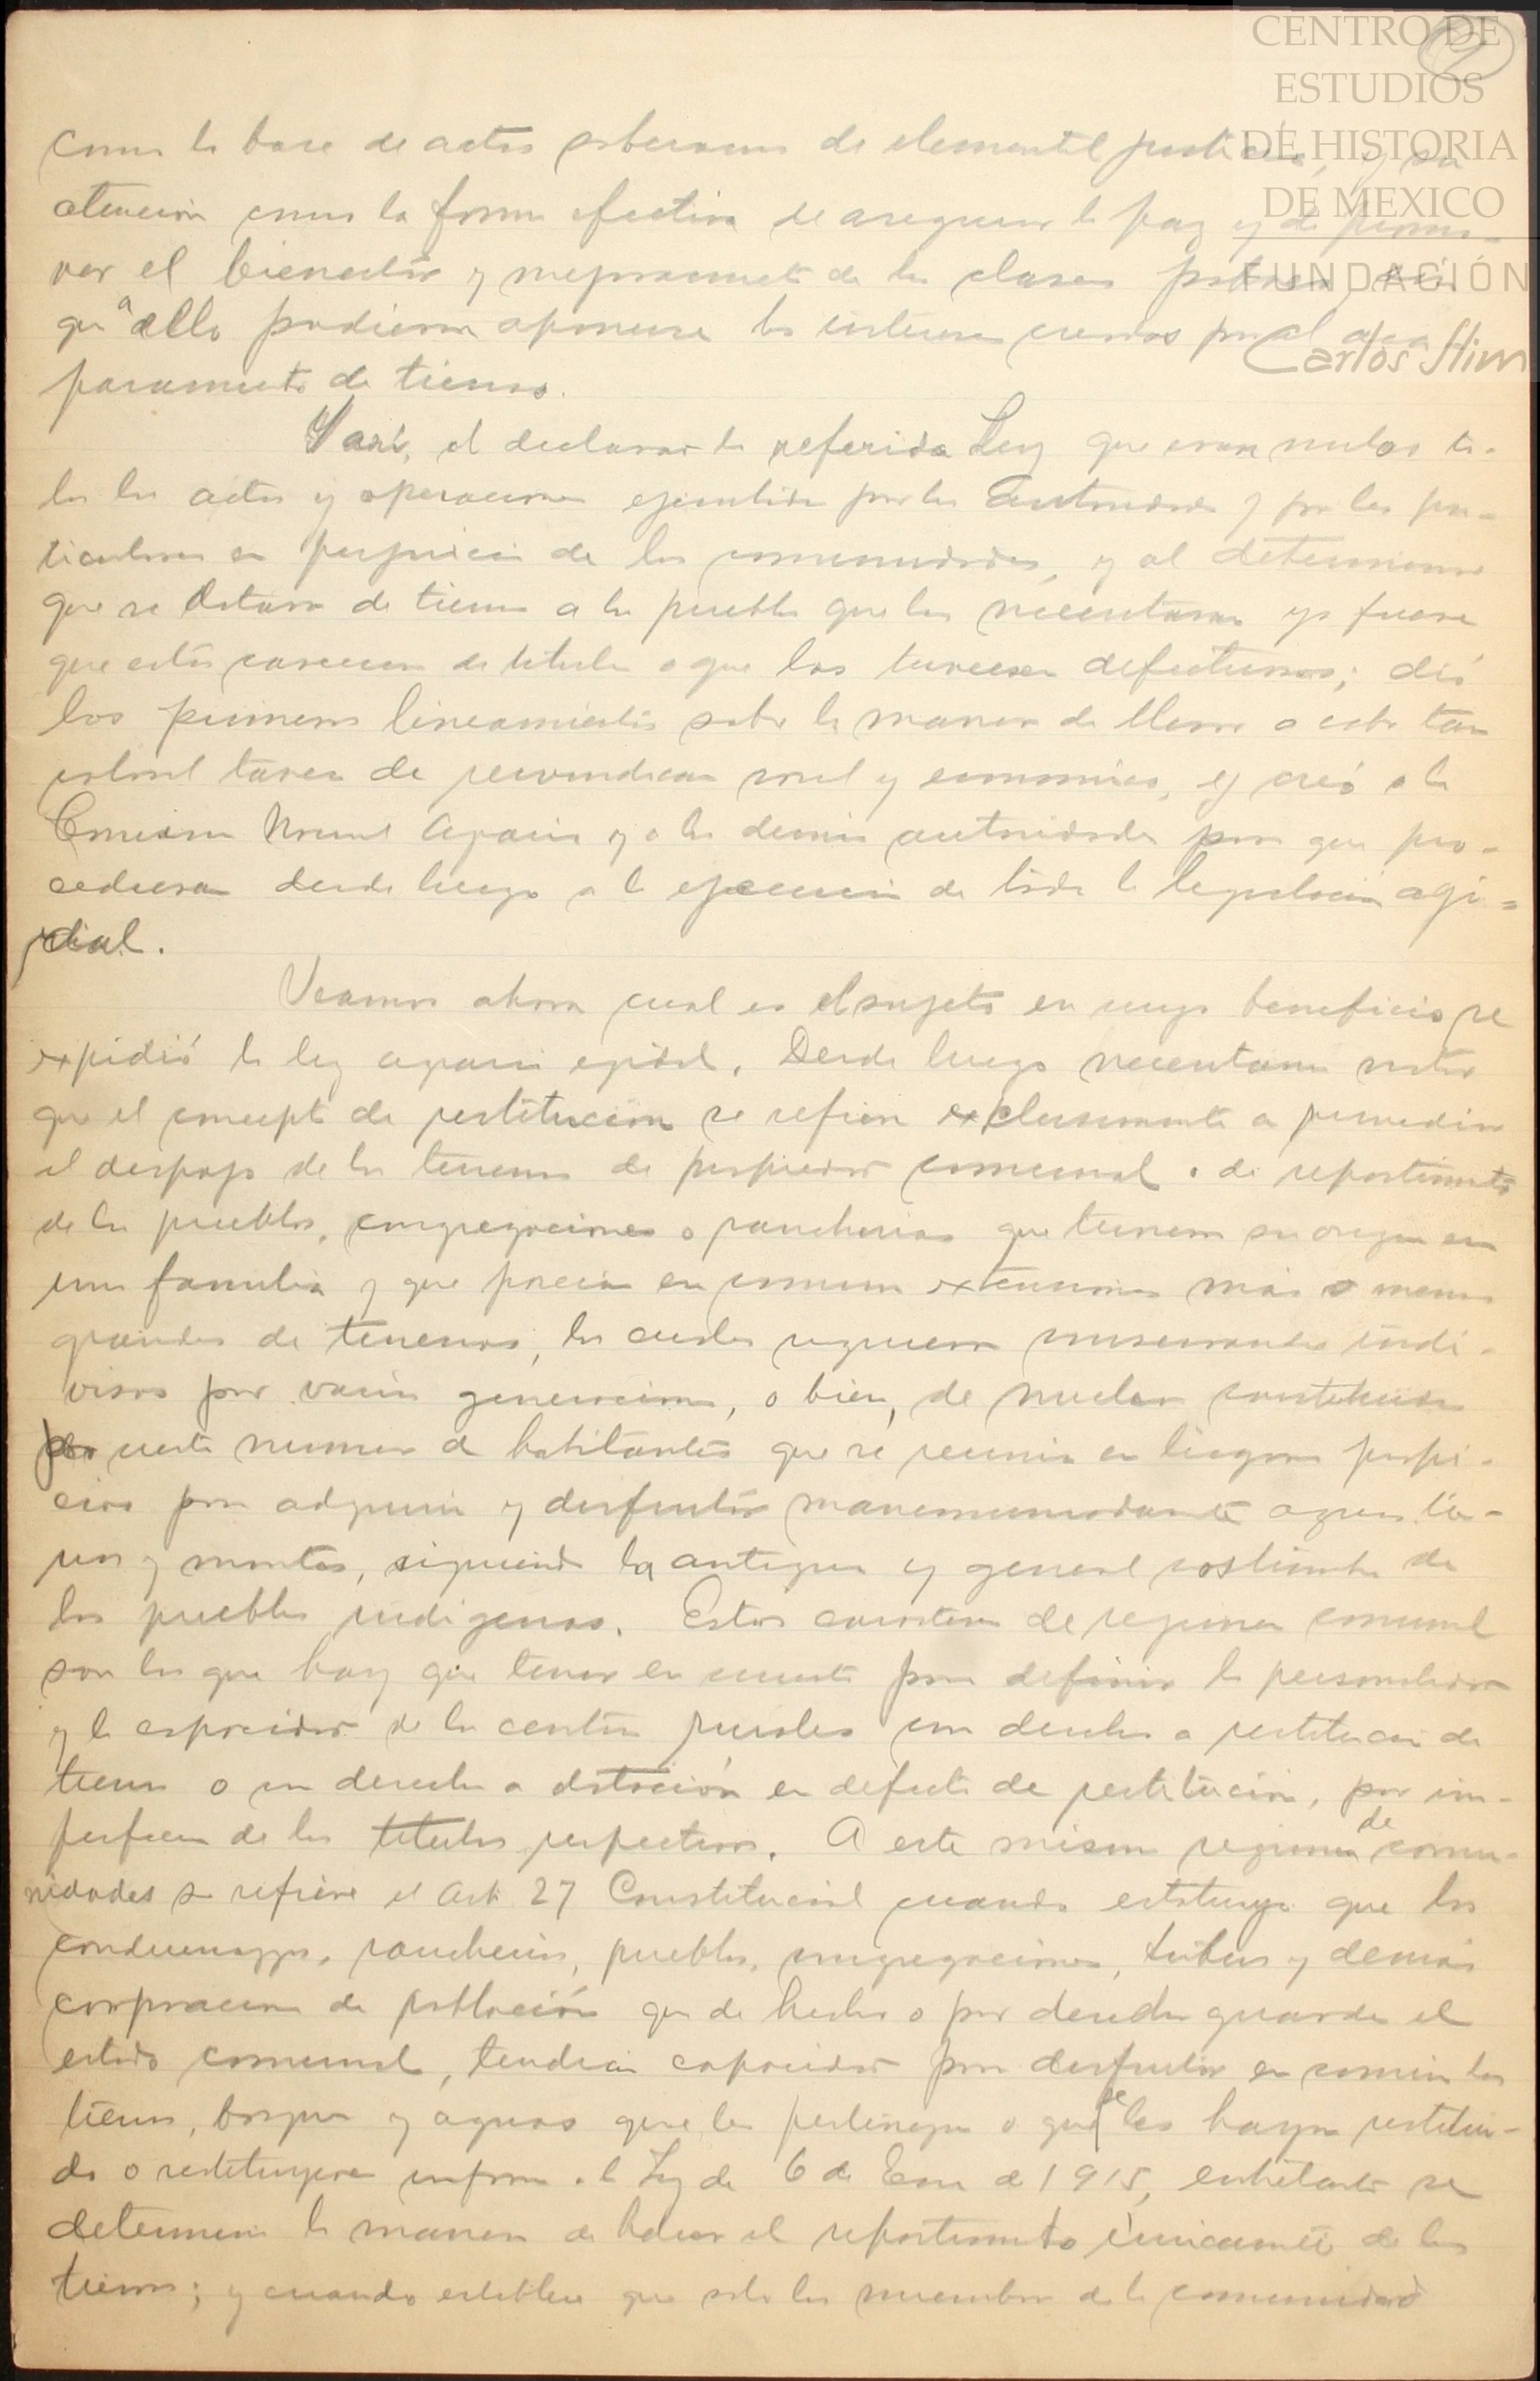 CENTRO DE
ESTUDIOS
DE HISTORIA
DE MEXICO
FUNDACIÓN
Carlos Slim
como la base de actos soberanos de elemental justicia, y su
atención como la forma efectiva de asegurar la paz y de promo-
ver el bienestar y mejoramiento de las clases pobres, sin
que a ello pudieran oponerse los intereses creados por el aca-
paramiento de tierras.
Y así, al declarar la referida Ley que eran nulos to-
dos los actos y operaciones ejecutados por las autoridades y por los par-
ticulares en perjuicio de las comunidades, y al determinar
que se dotara de tierras a los pueblos que las necesitaran ya fuera
que éstos carecieran de títulos o que los tuviesen defectuosos; dió
los primeros lineamientos sobre la manera de llevar a cabo tan
colosal tarea de reivindicación social y económica, y creó a la
Comisión Nacional Agraria y a las demás autoridades para que pro-
cedieran desde luego a la ejecución de toda la legislación agi-
dial.
Veamos ahora cual es el sujeto en cuyo beneficio se
expidió la ley agraria ejidal. Desde luego necesitamos notar
que el concepto de restitución se refiere exclusivamente a remediar
el despojo de los terrenos de propiedad comunal o de repartimiento
de los pueblos, congregaciones o rancherías que tienen su origen en
una familia y que poseía en común extensiones más o menos
grandes de terrenos, los cuales siguieron conservandose indi-
visos por varias generaciones, o bien, de nucleos constituidos
por cierto número de habitantes que se reunía en lugares propi-
cios para adquirir y disfrutar mancomunadamente aguas, tie-
rras y montes, siguiendo la antigua y general costumbre de
los pueblos indígenas. Estos caracteres de regimen comunal
son los que hay que tener en cuenta para definir la personalidad
y la capacidad de los centros rurales con derecho a restitución de
tierras o con derecho a dotación en defecto de restitución, por im-
perfección de los títulos respectivos. A este mismo regimen de comu-
nidades se refiere el Art. 27 Constitucional cuando estatuye que los
condueñazgos, rancherías, pueblos, congregaciones, tribus y demás
corporaciones de población que de hecho o por derecho guarden el
estado comunal, tendrán capacidad para disfrutar en común las
tierras, bosques y aguas que les pertenezcan o que se les hayan restitui-
do o restituyeren conforme a la Ley de 6 de Enero de 1915, entretanto se
determina la manera de hacer el repartimiento únicamente de las
tierras; y cuando establece que solo los miembros de la comunidad